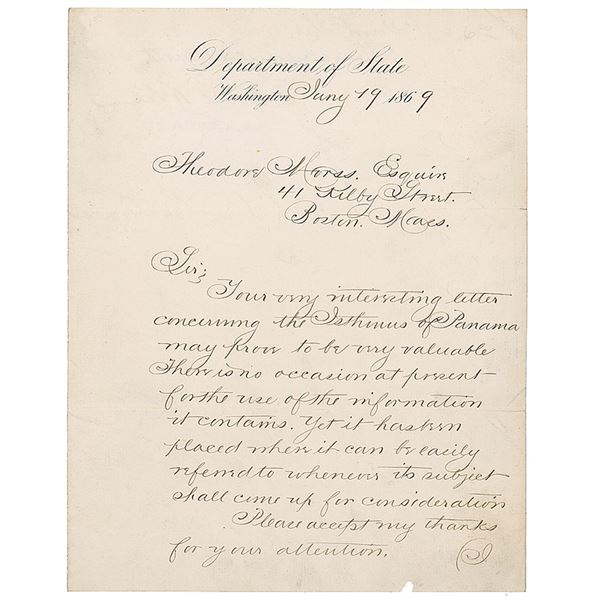 Department of State
Washington Jany 19 1869
Theodore Morss. Esquire
41 Kilby Street.
Boston. Mass.
Sir;
Your very interesting letter
concerning the Isthmus of Panama
may prove to be very valuable
There is no occasion at present
for the use of the information
it contains. Yet it has been
placed where it can be easily
referred to whenever its subject
shall come up for consideration
Please accept my thanks
for your attention. I